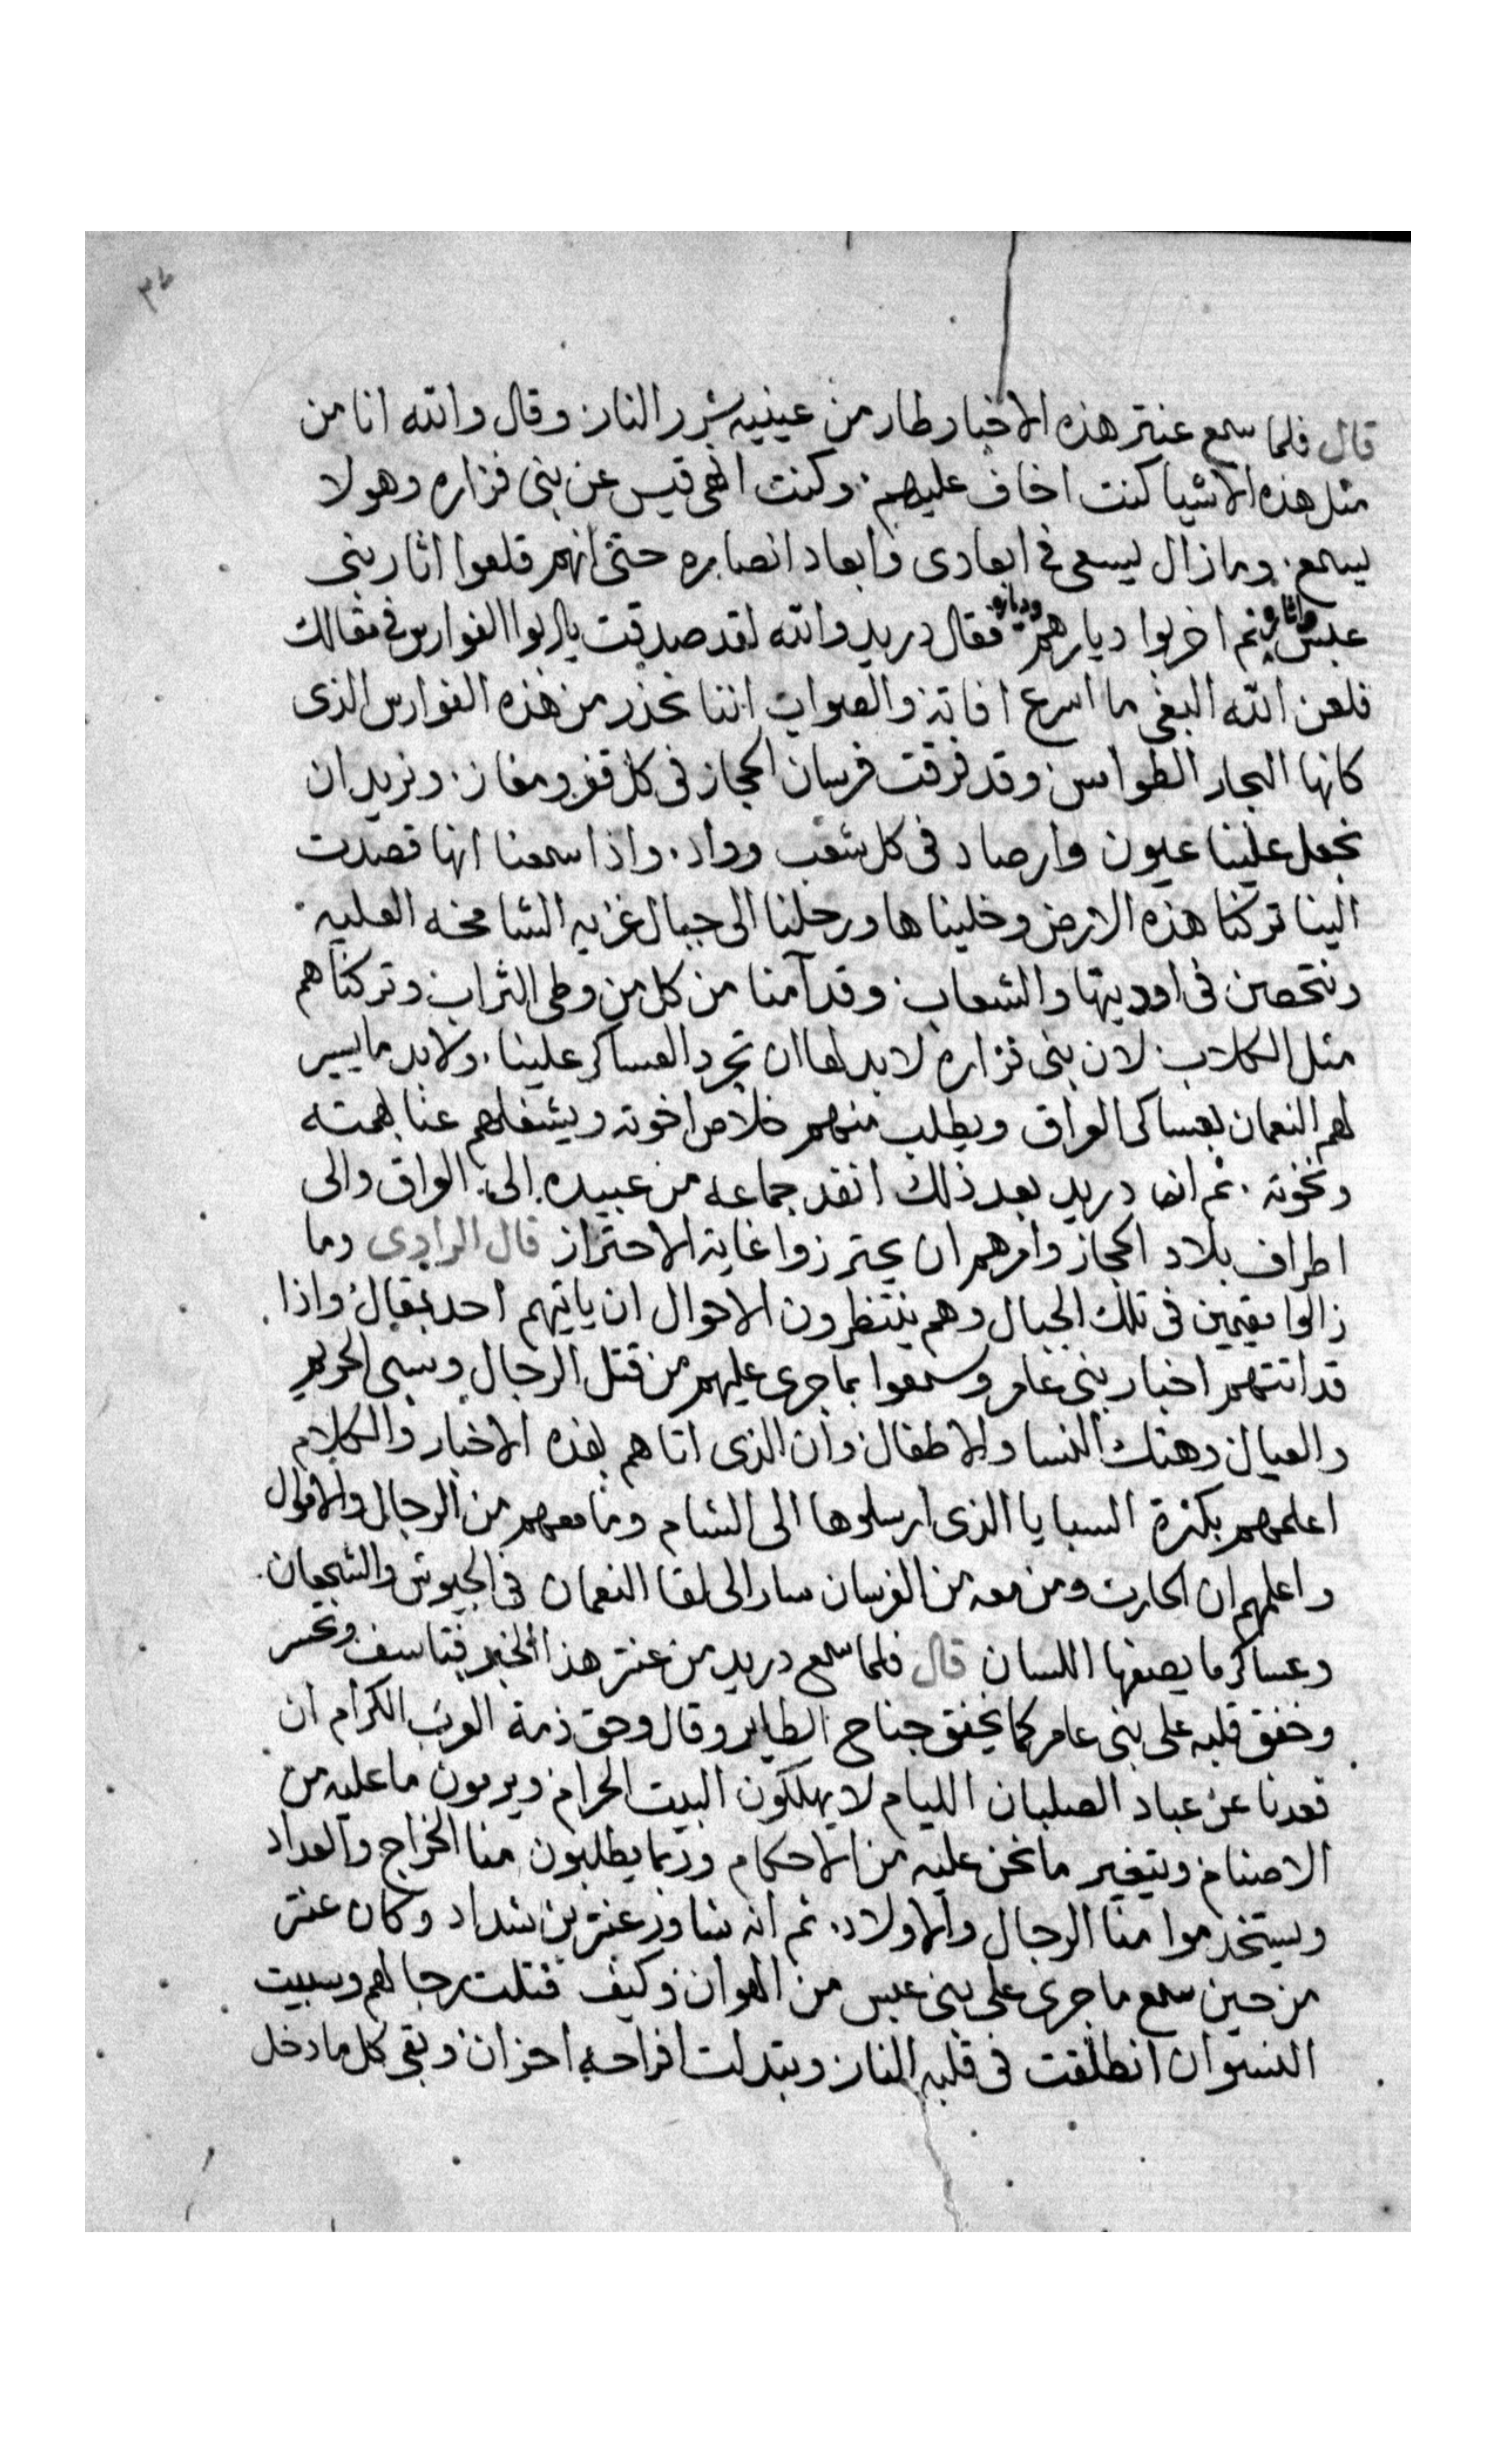 ٣٤
قال فلما سمع عنتر هذه الاخبار طار من عينيه شرر النار وقال والله انا من
مثل هذه الاشيا كنت اخاف عليهم وكنت انهى قيس عن بنى فزاره وهو لا
يسمع وما زال يسعى فى ابعادى وابعاد انصاره حتى انهم قلعوا اثار بنى
عبس ثم اخربوا ديارهم فقال دريد والله لقد صدقت يا ابوا الفوارس فى مقالك
فلعن الله البغى ما اسرع افاته والصواب اننا نحذر من هذه الفوارس الذى
كانها البحار الطوامس وقد فرقت فرسان الحجاز فى كل قفر ومفاز ونريد ان
نجعل علينا عيون وارصاد فى كل شعب وواد واذا سمعنا انها قصدت
الينا تركنا هذه الارض وخليناها ورحلنا الى جبال غزيه الشامخه العليه
ونتحصن فى اوديتها والشعاب وقد آمنا من كل من وطى التراب وتركناهم
مثل الكلاب لان بنى فزاره لا بد لها ان تجرد العساكر علينا ولابد ما يسير
لهم النعمان بعساكر العراق ويطلب منهم خلاص اخوته ويشغلهم عنا بهمته
ونخوته ثم ان دريد بعد ذلك انفد جماعه من عبيده الى العراق والى
اطراف بلاد الحجاز وامرهم ان يحترزوا غاية الاحتراز قال الراوى وما
زالوا مقيمين فى تلك الجبال وهم ينتظرون الاحوال ان ياتيهم احد بمقال واذا
قد اتتهم اخبار بنى عامر وسمعوا بما جرى عليهم من قتل الرجال وسبى الحريم
والعيال وهتك النسا والاطفال وان الذى اتاهم بهذه الاخبار والكلام
اعلمهم بكثرة السبايا الذى ارسلوها الى الشام وما معهم من الرجال والاموال
واعلمهم ان الحارث ومن معه من الفرسان سار الى لقا النعمان فى الجيوش والشجعان
وعساكر ما يصفها اللسان قال فلما سمع دريد من عنتر هذا الخبر فتاسف وتحسر
وخفق قلبه على بنى عامر كما يخفق جناح الطاير وقال وحق ذمة العرب الكرام ان
قعدنا عن عباد الصلبان الليام لا يهلكون البيت الحرام ويرمون ما عليه من
الاصنام ويتغير ما نحن عليه من الاحكام وربما يطلبون منا الخراج والعداد
ويستخدموا منا الرجال والاولاد ثم انه شاور عنتر بن شداد وكان عنتر
من حين سمع ما جرى على بنى عبس من الهوان وكيف قتلت رجالهم وسبيت
النسوان انطلقت فى قلبه النار وبتدلت افراحه احزان وبقى كل ما دخل